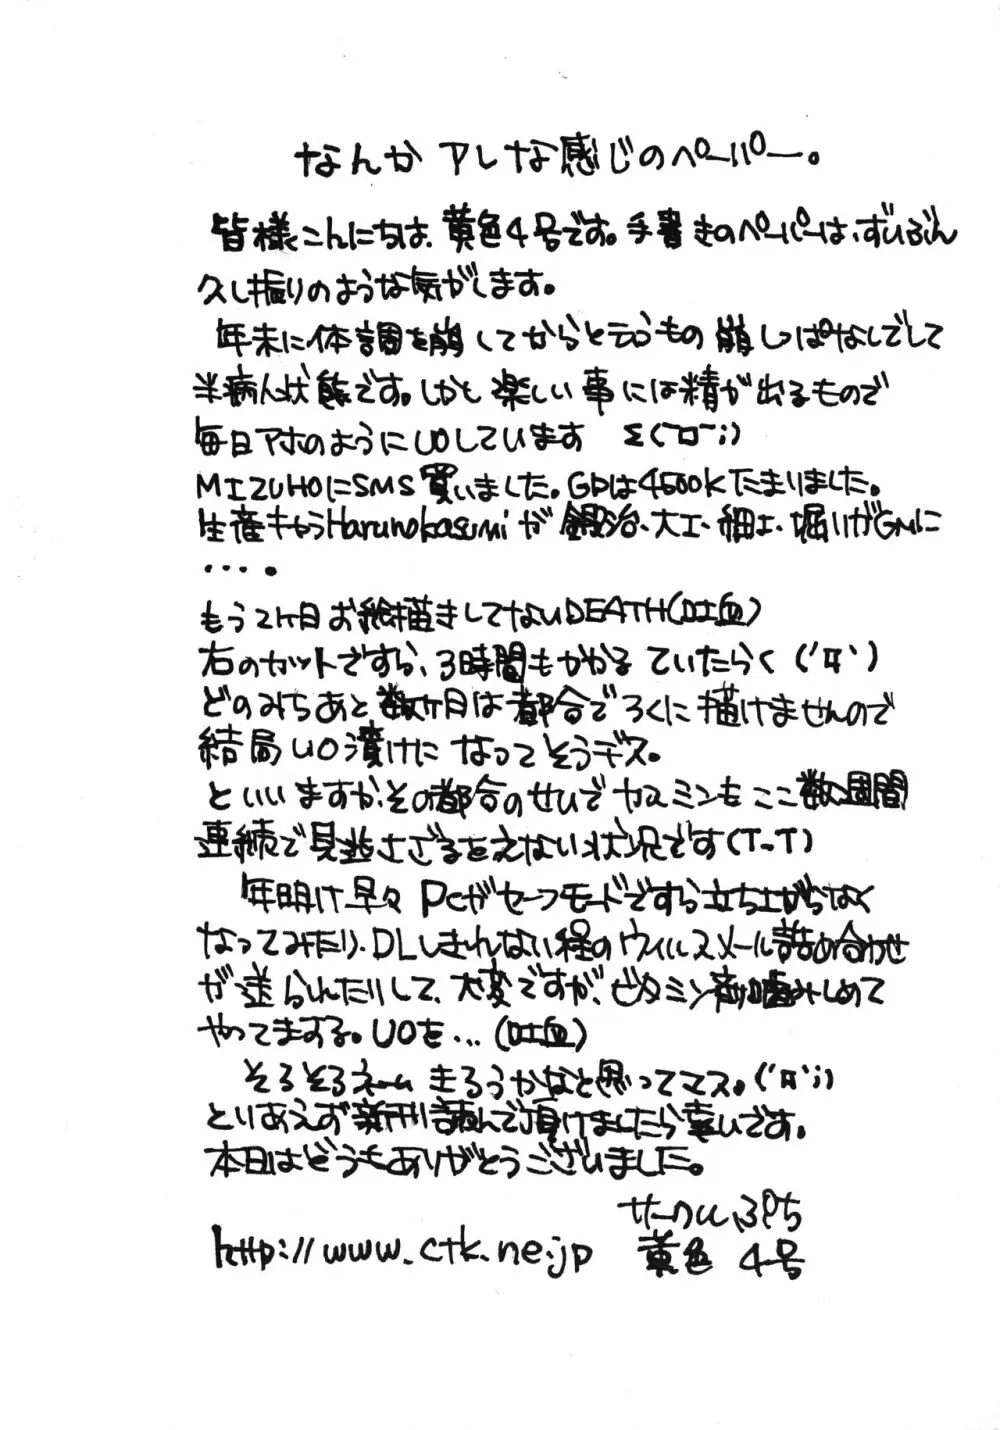 なんかアレな感じのペーパー。
皆様こんにちは、黄色4号です。手書きのペーパーは、ずいぶん
久し振りのような気がします。
年末に体調を崩してからと言うもの崩しっぱなしでして
半病人状態です。しかと楽しい事には精が出るもので
毎日アホのようにUOしています Σ(￣ロ￣;)
MIZUHOにSMS買いました。GPは4500Kたまりました。
生産キャラHarunokasumiが鍛冶、大工、細工、堀りがGMに
・・・・。
もう2ケ月お絵描きしてないDEATH(吐血)
右のカットですら、3時間もかかるていたらく('Д`)
どのみちあと数ケ月は都合でろくに描けませんので
結局UO漬けになってそうデス。
といいますか、その都合のせいでヤスミンもここ数週間
連続で見逃さざるをえない状況です(T-T)
年明け早々PCがセーフモードですら立ち上がらなく
なってみたり、DLしきれない程のウィルスメール詰め合わせ
が送られたりして、大変ですが、ビタミン剤噛みしめて
やってますよ。UOを...(吐血)
そろそろネームきろうかなと思ってマス。('Д`;)
とりあえず新刊読んで頂けましたら幸いです。
本日はどうもありがとうございました。
サークルぷち
http://www.ctk.ne.jp 黄色4号